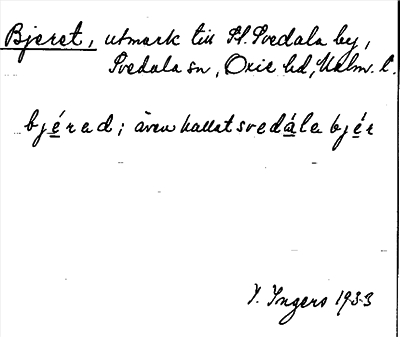 Bjeret, utmark till St. Svedala by,
Svedala sn, Oxie hd, Malm. l.
bjérad; även kallat svedála bjér
I. Ingers 1933